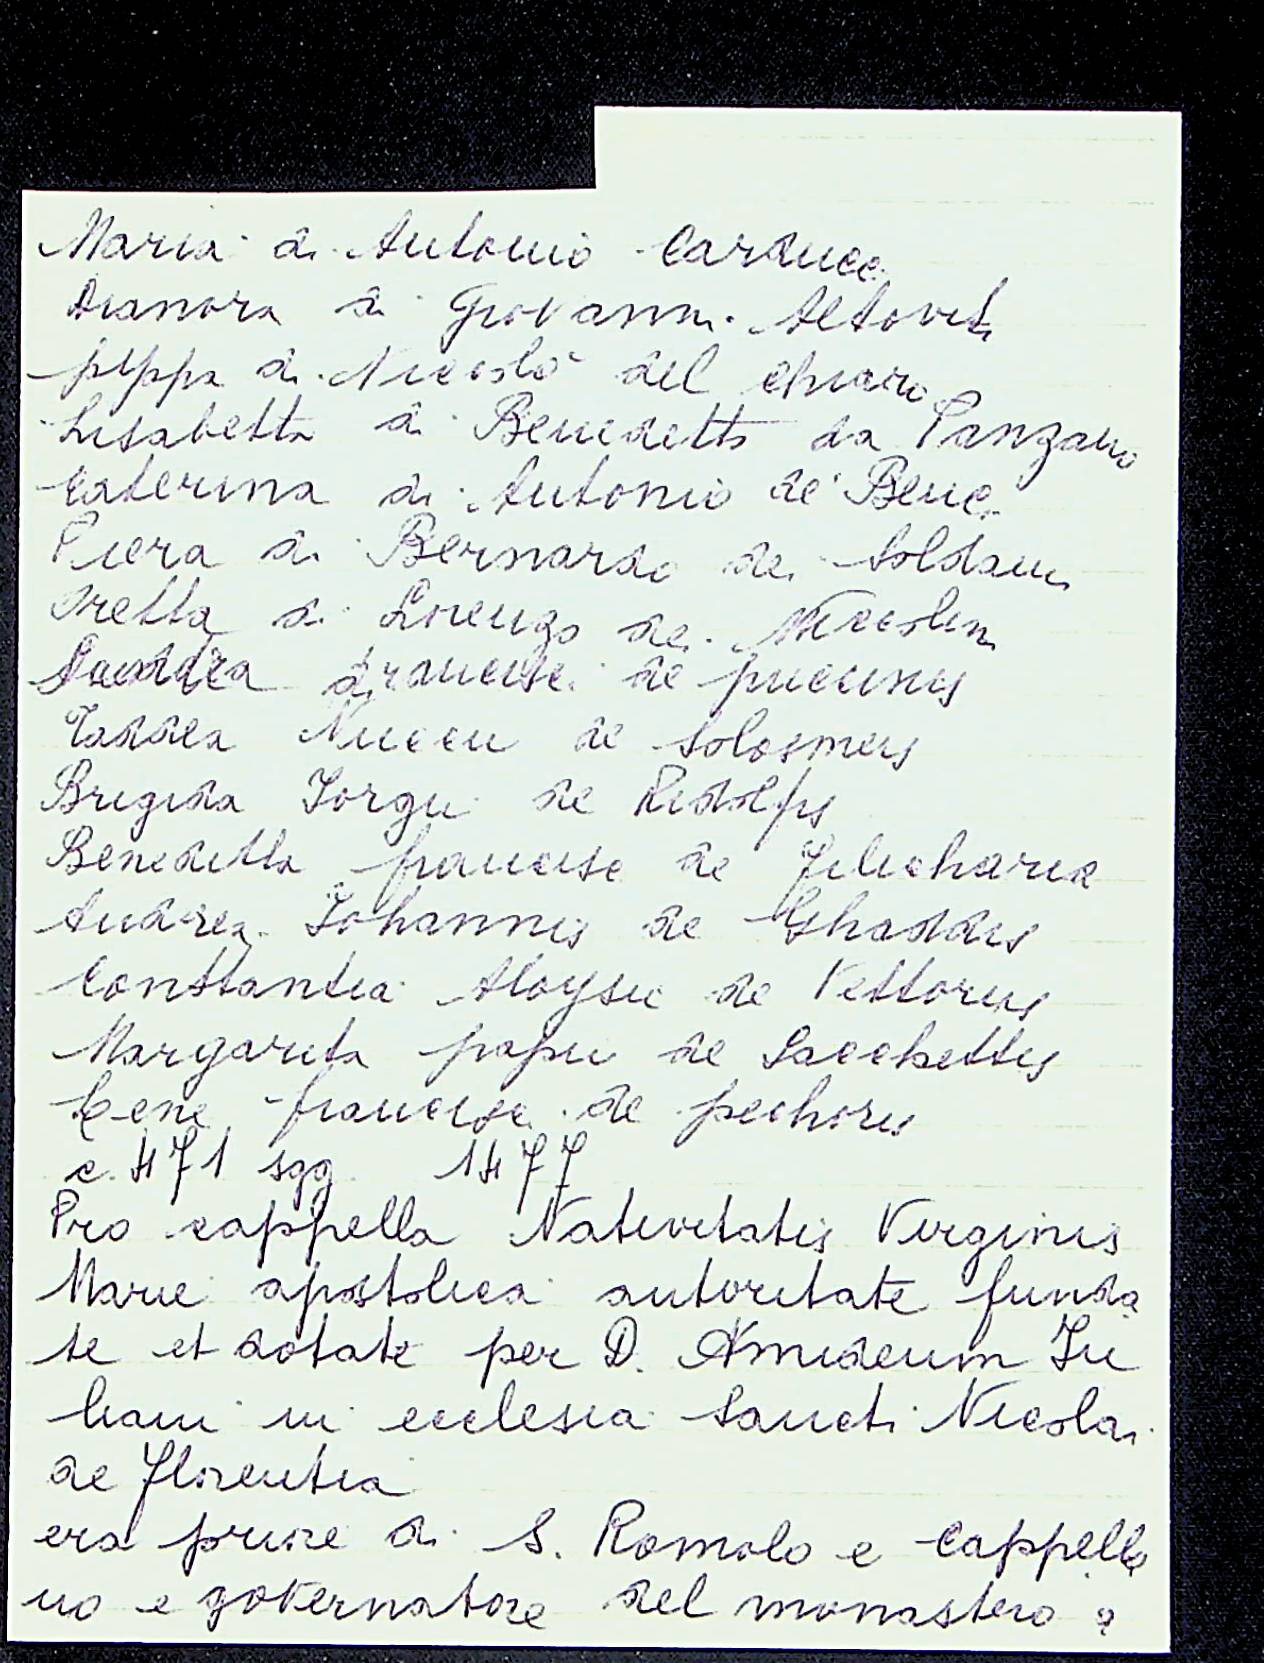 Maria di Antonio Carducci
Dianora di Giovanni Altoviti
pippa di Niccolò del chiaro
Lisabetta di Benedetto da Panzano
Caterina di Antonio de' Benci
Piera di Bernardo de Soldani
Oretta di Lorenzo de Niccolini
francisci de puccinis
Taddea Nuccii de Solosmeis
Brigida Iorgii de Ridolfis
Benedetta francisci de Filicharia
Andrea Iohannis de Ghaddis
Constantia Aloysii de Vettoriis
Margarita papii de Sacchettis
francisci de pechoris
c. 471 sgg 1477
Pro cappella Nativitatis Virginis
Marie apostolica autoritate funda
te et dotate per D. Amideum Iu
liani in ecclesia Sancti Nicolai
de florentia
era priore di S. Romolo e cappella
no e governatore del monastero